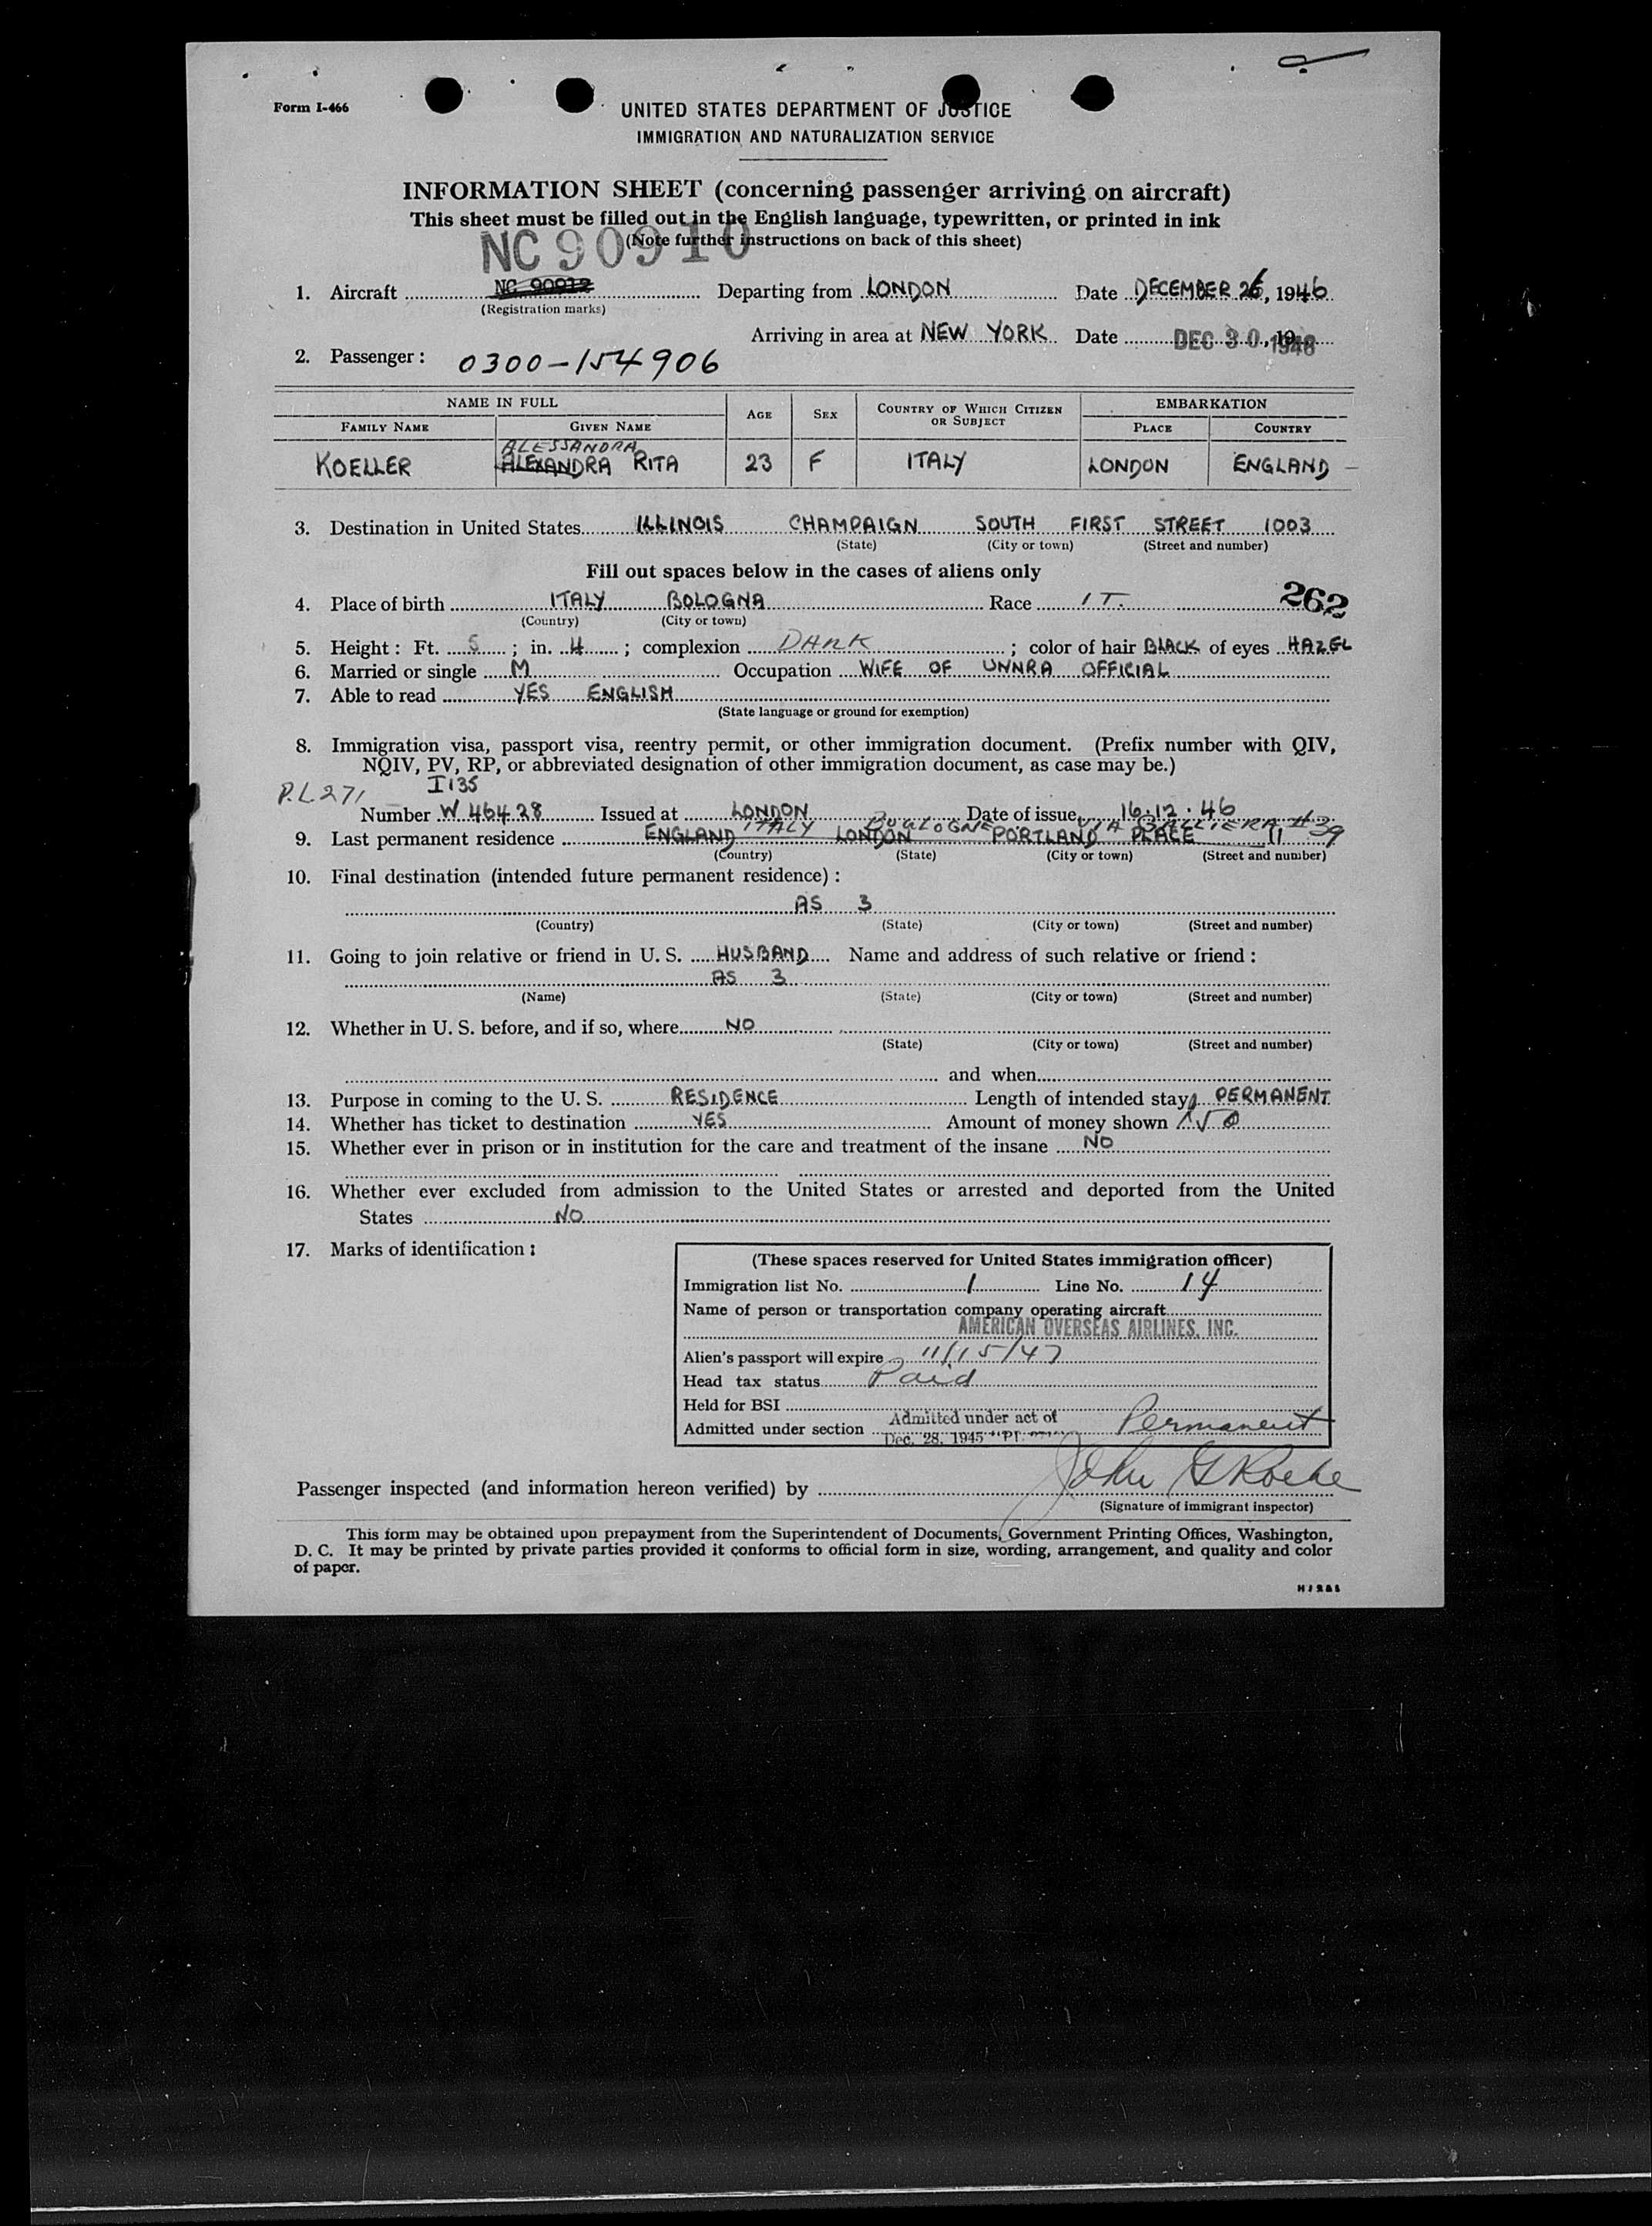 Form I-466
UNITED STATES DEPARTMENT OF JUSTICE
IMMIGRATION AND NATURALIZATION SERVICE
INFORMATION SHEET (concerning passenger arriving on aircraft)
This sheet must be filled out in the English language, typewritten, or printed in ink
(Note further instructions on back of this sheet)
NC 90910
1. Aircraft NC 90912 Departing from LONDON Date DECEMBER 26, 1946
(Registration marks)
Arriving in area at NEW YORK Date DEC 30, 1946
2. Passenger: 0300-154906
NAME IN FULL AGE SEX COUNTRY OF WHICH CITIZEN OR SUBJECT EMBARKATION
FAMILY NAME GIVEN NAME PLACE COUNTRY
ALESSANDRA
KOELLER ALEXANDRA RITA 23 F ITALY LONDON ENGLAND
3. Destination in United States ILLINOIS CHAMPAIGN SOUTH FIRST STREET 1003
(State) (City or town) (Street and number)
Fill out spaces below in the cases of aliens only
262
4. Place of birth ITALY BOLOGNA Race IT.
(Country) (City or town)
5. Height: Ft. 5; in. 4; complexion DARK; color of hair BLACK of eyes HAZEL
6. Married or single M Occupation WIFE OF UNNRA OFFICIAL
7. Able to read YES ENGLISH
(State language or ground for exemption)
8. Immigration visa, passport visa, reentry permit, or other immigration document. (Prefix number with QIV,
NQIV, PV, RP, or abbreviated designation of other immigration document, as case may be.)
P.L 271 I 135
Number W 46428 Issued at LONDON Date of issue 16.12.46
ITALY VIA #39
9. Last permanent residence ENGLAND LONDON PORTLAND PLACE 11
(Country) (State) (City or town) (Street and number)
10. Final destination (intended future permanent residence):
AS 3
(Country) (State) (City or town) (Street and number)
11. Going to join relative or friend in U. S. HUSBAND Name and address of such relative or friend:
AS 3
(Name) (State) (City or town) (Street and number)
12. Whether in U. S. before, and if so, where NO
(State) (City or town) (Street and number)
and when
13. Purpose in coming to the U. S. RESIDENCE Length of intended stay PERMANENT
14. Whether has ticket to destination YES Amount of money shown
15. Whether ever in prison or in institution for the care and treatment of the insane NO
16. Whether ever excluded from admission to the United States or arrested and deported from the United
States NO
17. Marks of identification:
(These spaces reserved for United States immigration officer)
Immigration list No. 1 Line No. 14
Name of person or transportation company operating aircraft
AMERICAN OVERSEAS AIRLINES, INC.
Alien's passport will expire 11/15/47
Head tax status Paid
Held for BSI
Admitted under section Admitted under act of Permanent
Dec. 28, 1945
Passenger inspected (and information hereon verified) by John G Roche
(Signature of immigrant inspector)
This form may be obtained upon prepayment from the Superintendent of Documents, Government Printing Offices, Washington,
D. C. It may be printed by private parties provided it conforms to official form in size, wording, arrangement, and quality and color
of paper.